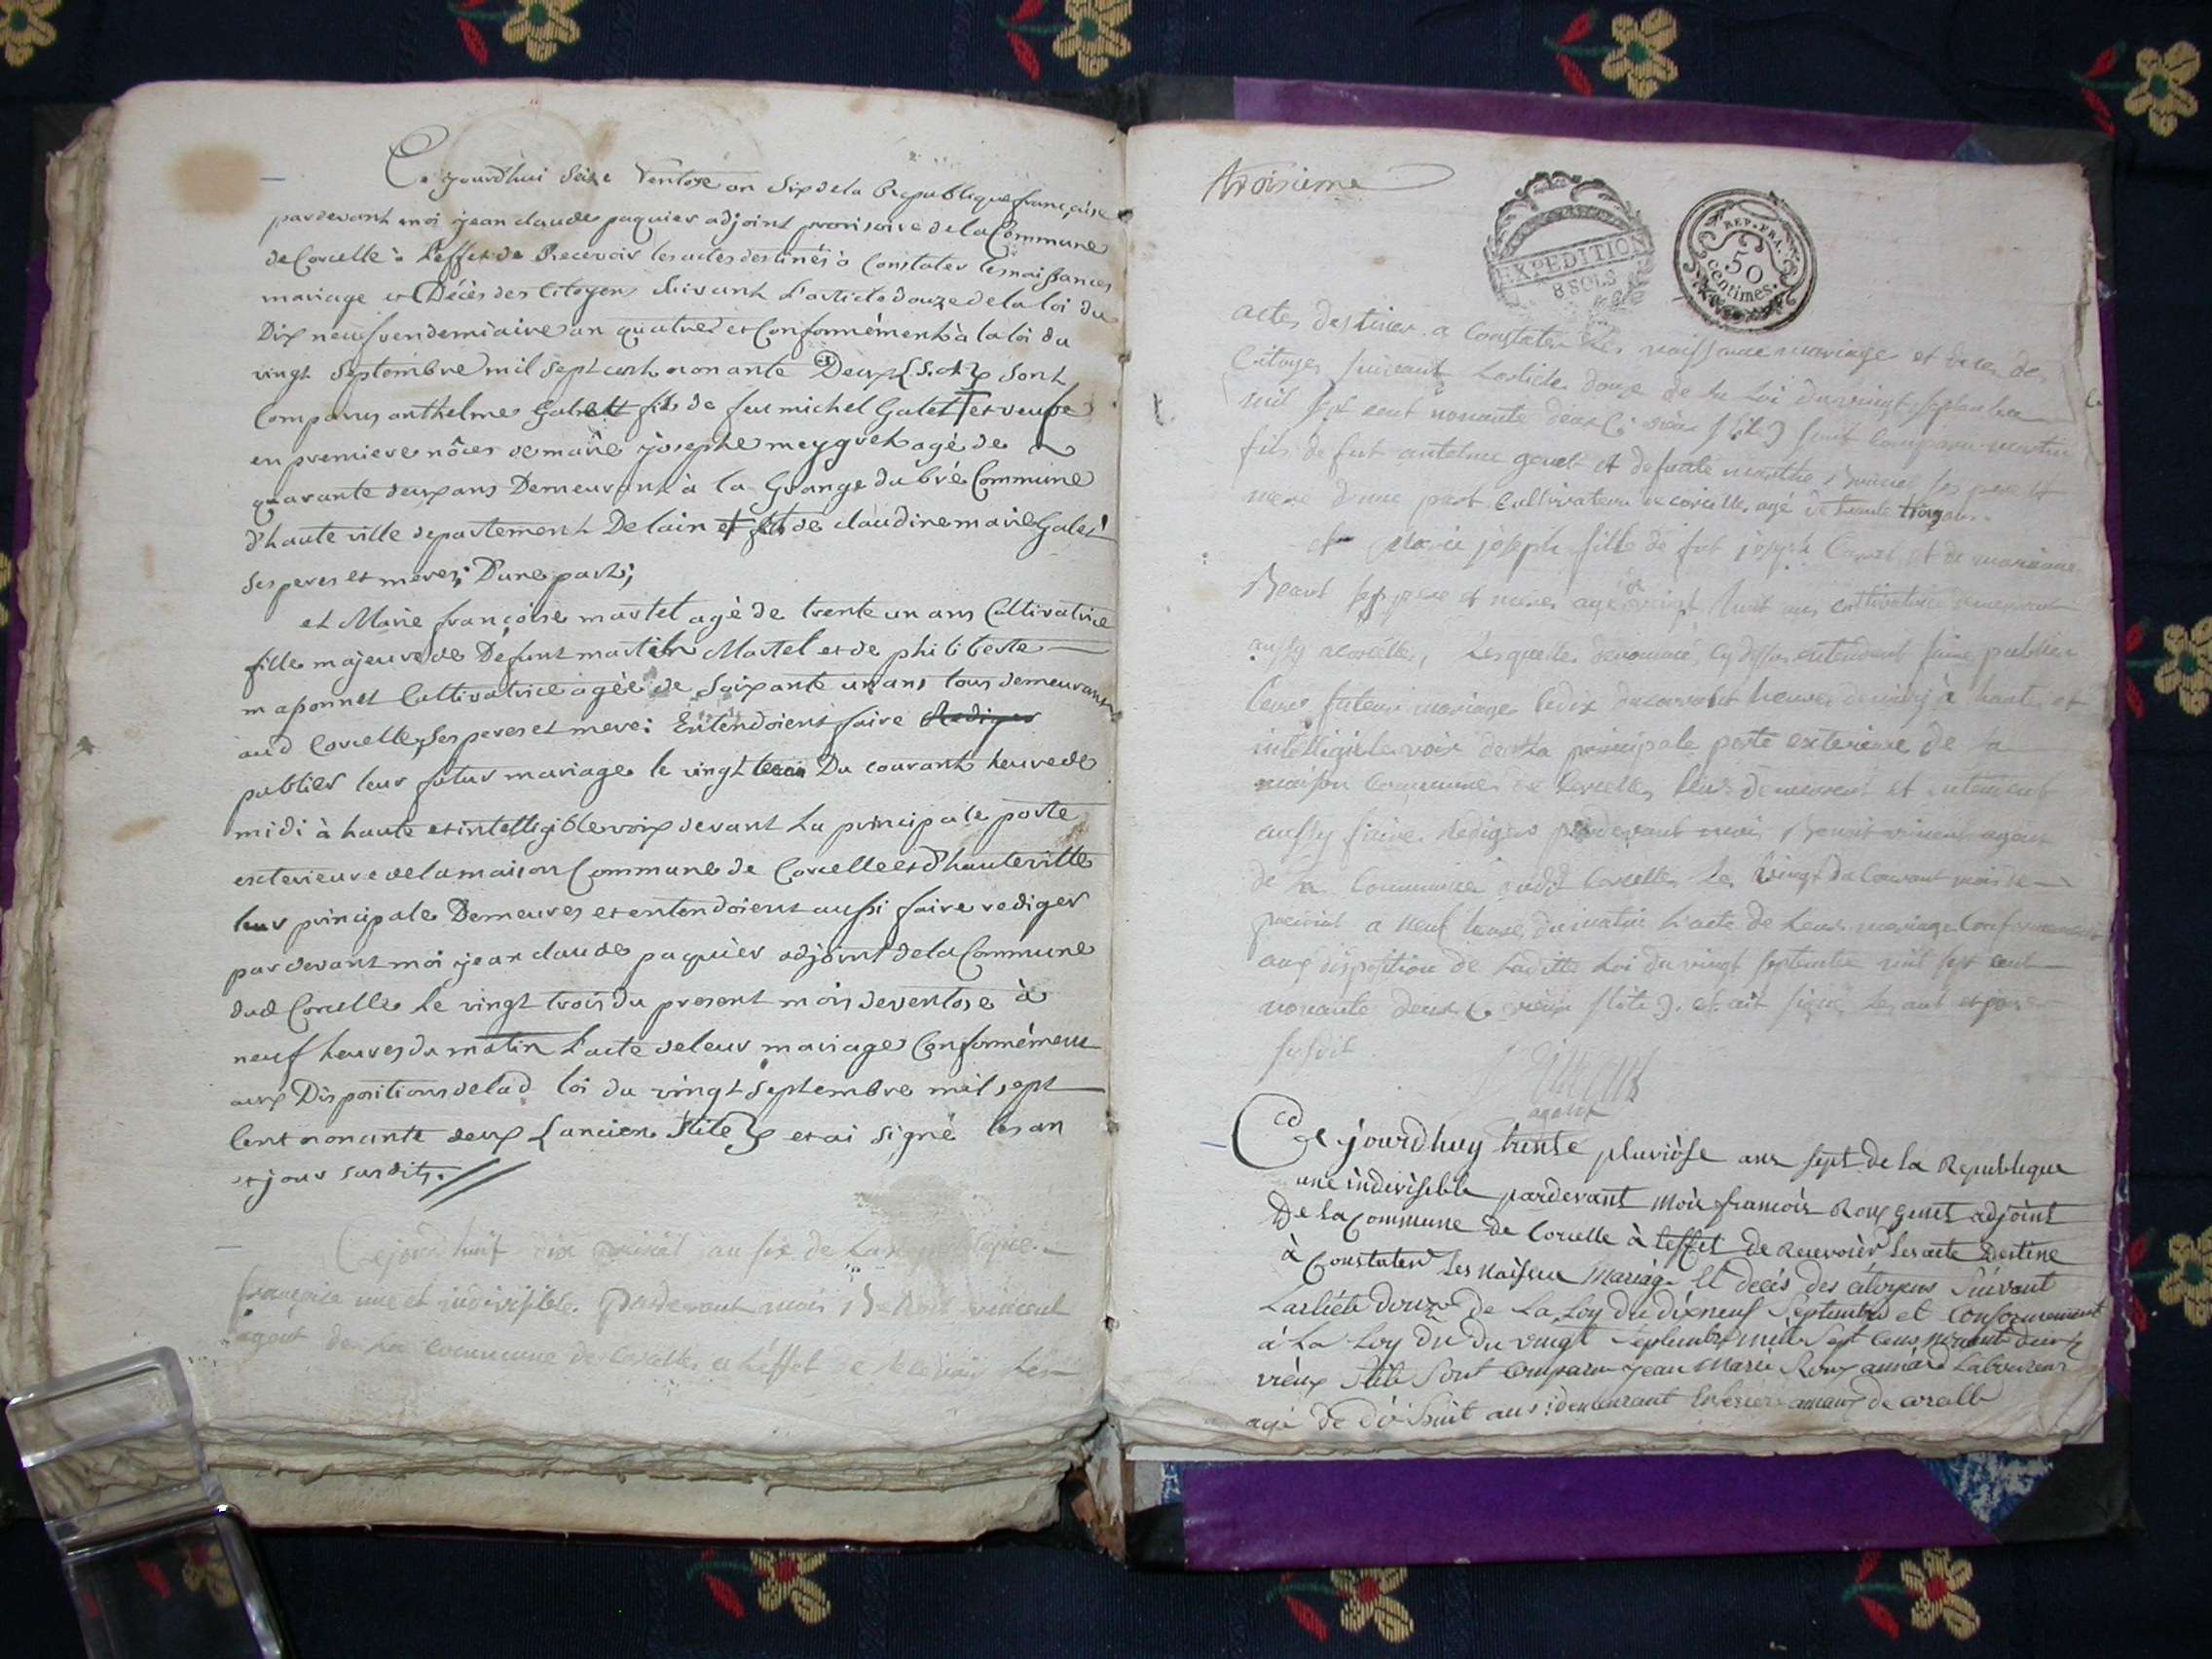 Ce jourd'hui seize Ventose an Six de la Republique française
pardevant moi jean claude paquier adjoint provisoire de la Commune
de Corcelle à L'effet de Recevoir les actes destinés à Constater les naissances
mariage et Décès des Citoyens Suivant L'article douze de la loi du
Dix neuf vendemiaire an quatre et Conformément à la loi du
vingt Septembre mil Sept cent nonante Deux sont
Comparus anthelme Galet fils de feu michel Galet et veufve
en premiere nôces de marie josephe meygret agé de
quarante deux ans Demeurant à la Grange du bré Commune
d'haute ville departement De lain et de claudine marie Galet
Ses peres et meres; D'une part;
et Marie françoise martel agé de trente un ans Cultivatrice
fille majeure de Défunt martin Martel et de philiberte
maponnet Cultivatrice agée de Soixante un ans tous demeurants
aud Corcelle, Ses peres et mere: Entendoient faire Rediger
publier leur futur mariage le vingt Du courant heure de
midi à haute et intelligible voix devant La principale porte
exterieure de la maison Commune de Corcelle et d'hauteville
leur principale Demeures et entendoient aussi faire rediger
pardevant moi jean claude paquier adjoint de la Commune
dud Corcelle Le vingt trois du present mois de ventose à
neuf heures du matin L'acte de leur mariage Conformément
aux Dispositions de lad loi du vingt Septembre mil sept
Cent nonante deux L'ancien Stile et ai Signé les an
et jour susdits.
Cejourd'huit dix prairial an six de La republique
française une et indivisible. Pardevant moi Benoit vincent
agent de La commune de Corcelle a L'effet de Recevoir Les
troisieme
EXPEDITION
8 SOLS
REP. FRA.
50
centimes.
actes destiner a Constater Les naissance mariage et deces des
Citoyen suivant Larticle douze de la Loi du vingt septembre
mil sept cent nonante deux (vieux stile) sont comparu martin
fils de fut antelme genet et de fuute marthe ses pere et
mere d'une part Cultivateur de corcelle, agé de trente trois ans
et Marie joseph fille de fut joseph et de mariaine
ses pere et mere, agé de vingt huit ans cultivatrice demeurant
aussy a corcelle, Lesquelles denommé cy dessus entendent faire publier
leurs futeur mariage Ledix du courant heure de midy à haute et
intelligible voix devant La principale porte exterieure de la
maison Commune de Corcelle, leurs demeurent et entendent
aussy faire Rediger pardevant moi Benoit vincent agent
de La Commune dudit Corcelle Le vingt du Courant mois de
prairial a neuf heure du matin L'acte de Leurs mariage Conformement
aux disposition de Laditte Loi du vingt septembre mil sept cent
nonante deux (vieux stile). et ait signé Les ant et jour
susdit
Vincent
agent
Ce jourdhuy trente pluviôse ans sept de la Republique
une indivisible pardevant moi francois Roux genet adjoint
De la Commune de Corcelle à leffet de Recevoir les acte Destine
à Constater Les naisence Mariage Et decés des citoyens Suivant
Larticle douze de La Loy du dixneuf Septembre et Conformement
à La Loy du du vingt Septembre mille sept Cens nonante deux
vieux stile Sont Comparu jean Marie Roux Laboureur
agé de dix huit ans: demeurant